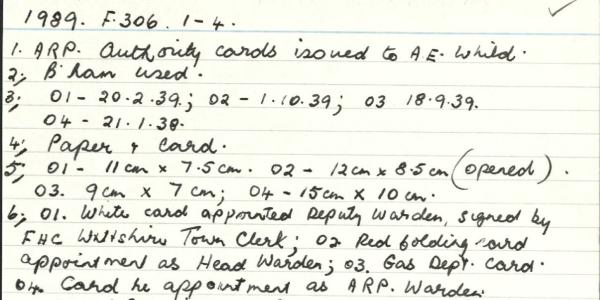 1989. F.306. 1-4.
1. ARP. Authority cards issued to A.E. Whild.
2; B'ham used.
3; 01 - 20.2.39; 02 - 1.10.39; 03 18.9.39.
04 - 21.1.38.
4; Paper & Card.
5; 01 - 11cm x 7.5cm. 02 - 12cm x 8.5cm (opened).
03. 9cm x 7cm; 04 - 15cm x 10cm.
6; 01. White card appointed Deputy Warden, signed by
FHC Wiltshire Town Clerk; 02 Red folding card
appointment as Head Warden; 03. Gas Dept. Card.
04. Card re appointment as ARP. Warden